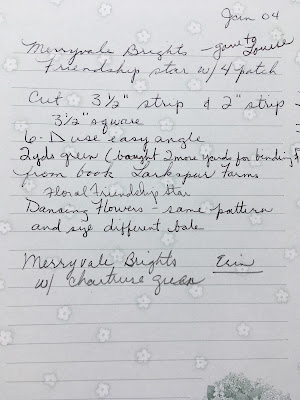 Jan 04
Merryvale Brights - gave to Louise
Friendship star w/ 4 patch
Cut 3 1/2" strip & 2" strip
3 1/2" square
6 - use easy angle
2 yds green (bought 2 more yards for binding
from book Larkspur Farms
Floral Friendship Star
Dancing Flowers - same pattern
and size different
Merryvale Brights Erin
w/ chartruse green